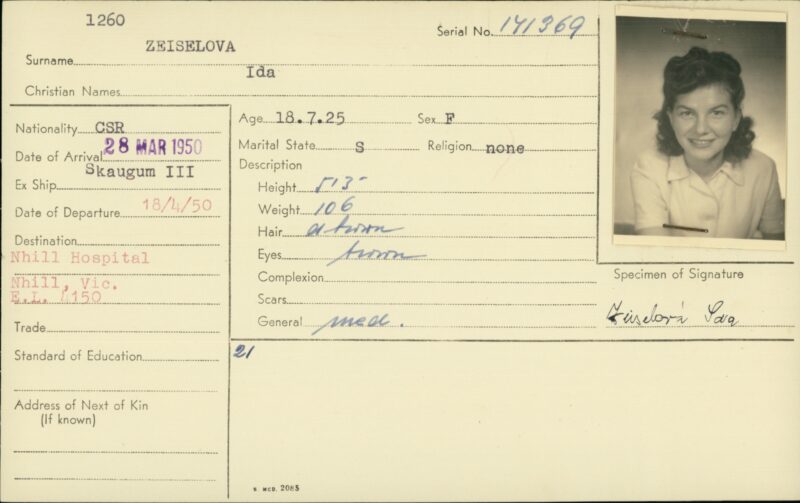 1260
Serial No. 141369
Surname ZEISELOVA
Christian Names Ida
Nationality CSR
Date of Arrival 28 MAR 1950
Ex Ship Skaugum III
Date of Departure 18/4/50
Destination
Nhill Hospital
Nhill, Vic.
E.L. 4150
Trade
Standard of Education
Address of Next of Kin
(If known)
Age 18.7.25 Sex F
Marital State S Religion none
Description
Height 5'3"
Weight 106
Hair d brown
Eyes brown
Complexion
Scars
General med.
21
Specimen of Signature
Zeiselová Ida
S. MCD. 2085